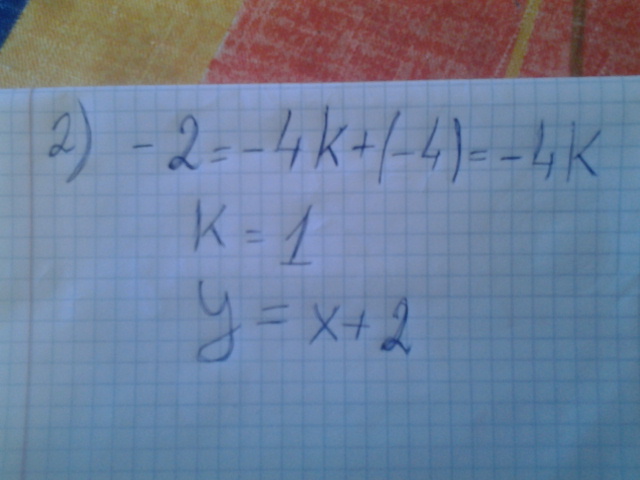 2) -2=-4k+(-4)=-4k
k=1
y=x+2